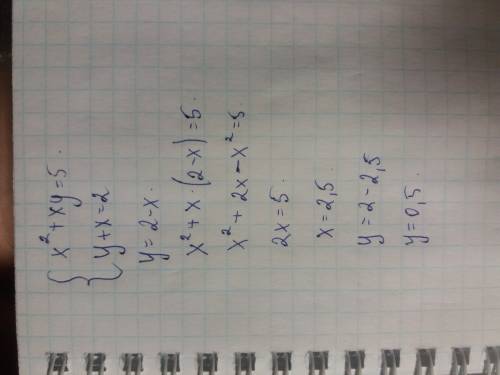 { x²+xy=5.
{ y+x=2
y=2-x.
x²+x·(2-x)=5.
x²+2x-x²=5.
2x=5.
x=2,5.
y=2-2,5
y=0,5.